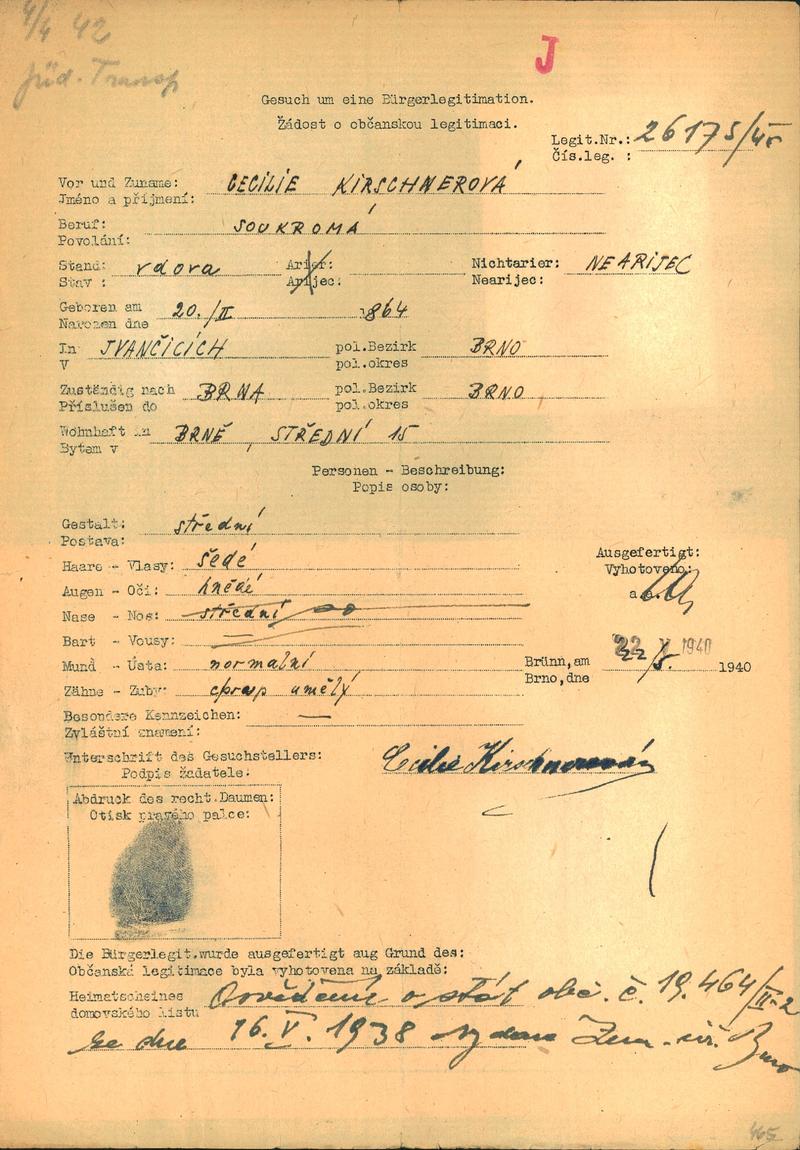 4/4 42
Jüd. Transp
J
Gesuch um eine Bürgerlegitimation.
Žádost o občanskou legitimaci.
Legit.Nr.: 26175/40
Čís.leg. :
Vor und Zuname: CECILIE KIRSCHNEROVÁ
Jméno a příjmení:
Beruf: SOUKROMÁ
Povolání:
Stand: vdova Arier: Nichtarier: NEARIJEC
Stav : Arijec: Nearijec:
Geboren am 20./II 1864
Narozen dne
In IVANČICÍCH pol.Bezirk BRNO
V pol.okres
Zuständig nach BRNA pol.Bezirk BRNO
Příslušen do pol.okres
Wohnhaft in BRNĚ, STŘEDNÍ 15
Bytem v
Personen - Beschreibung:
Popis osoby:
Gestalt: střední
Postava:
Haare - Vlasy: šedé
Augen - Oči: hnědé
Nase - Nos: střední
Bart - Vousy:
Mund - Ústa: normalní
Zähne - Zuby: chrup umělý
Besondere Kennzeichen: —
Zvláštní znamení:
Ausgefertigt:
Vyhotoveno:
Brünn,am 22 V 1940 1940
Brno,dne
Unterschrift des Gesuchstellers: Cecilie Kirschnerová
Podpis žadatele:
Abdruck des recht.Daumen:
Otisk pravého palce:
Die Bürgerlegit.wurde ausgefertigt aug Grund des:
Občanská legitimace byla vyhotovena na základě:
Heimatscheines Osvědčení o stát obč. č. 19.464/II-2
domovského listu
ze dne 16.V.1938 vydané Zem. úř. Brno
465